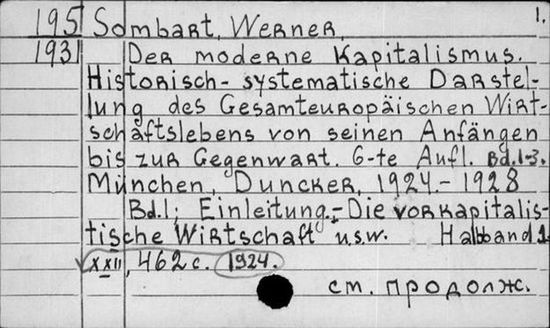 195 Sombart, Werner. 1.
1931 Der moderne Kapitalismus.
Historisch-systematische Darstel-
lung des Gesamteuropäischen Wirt-
schaftslebens von seinen Anfängen
bis zur Gegenwart. 6-te Aufl. Bd.1-3.
München, Duncker, 1924.-1928
Bd.1: Einleitung.-Die vorkapitalis-
tische Wirtschaft u.s.w. Halband 1.
XXII, 462 с. 1924.
см. продолж.